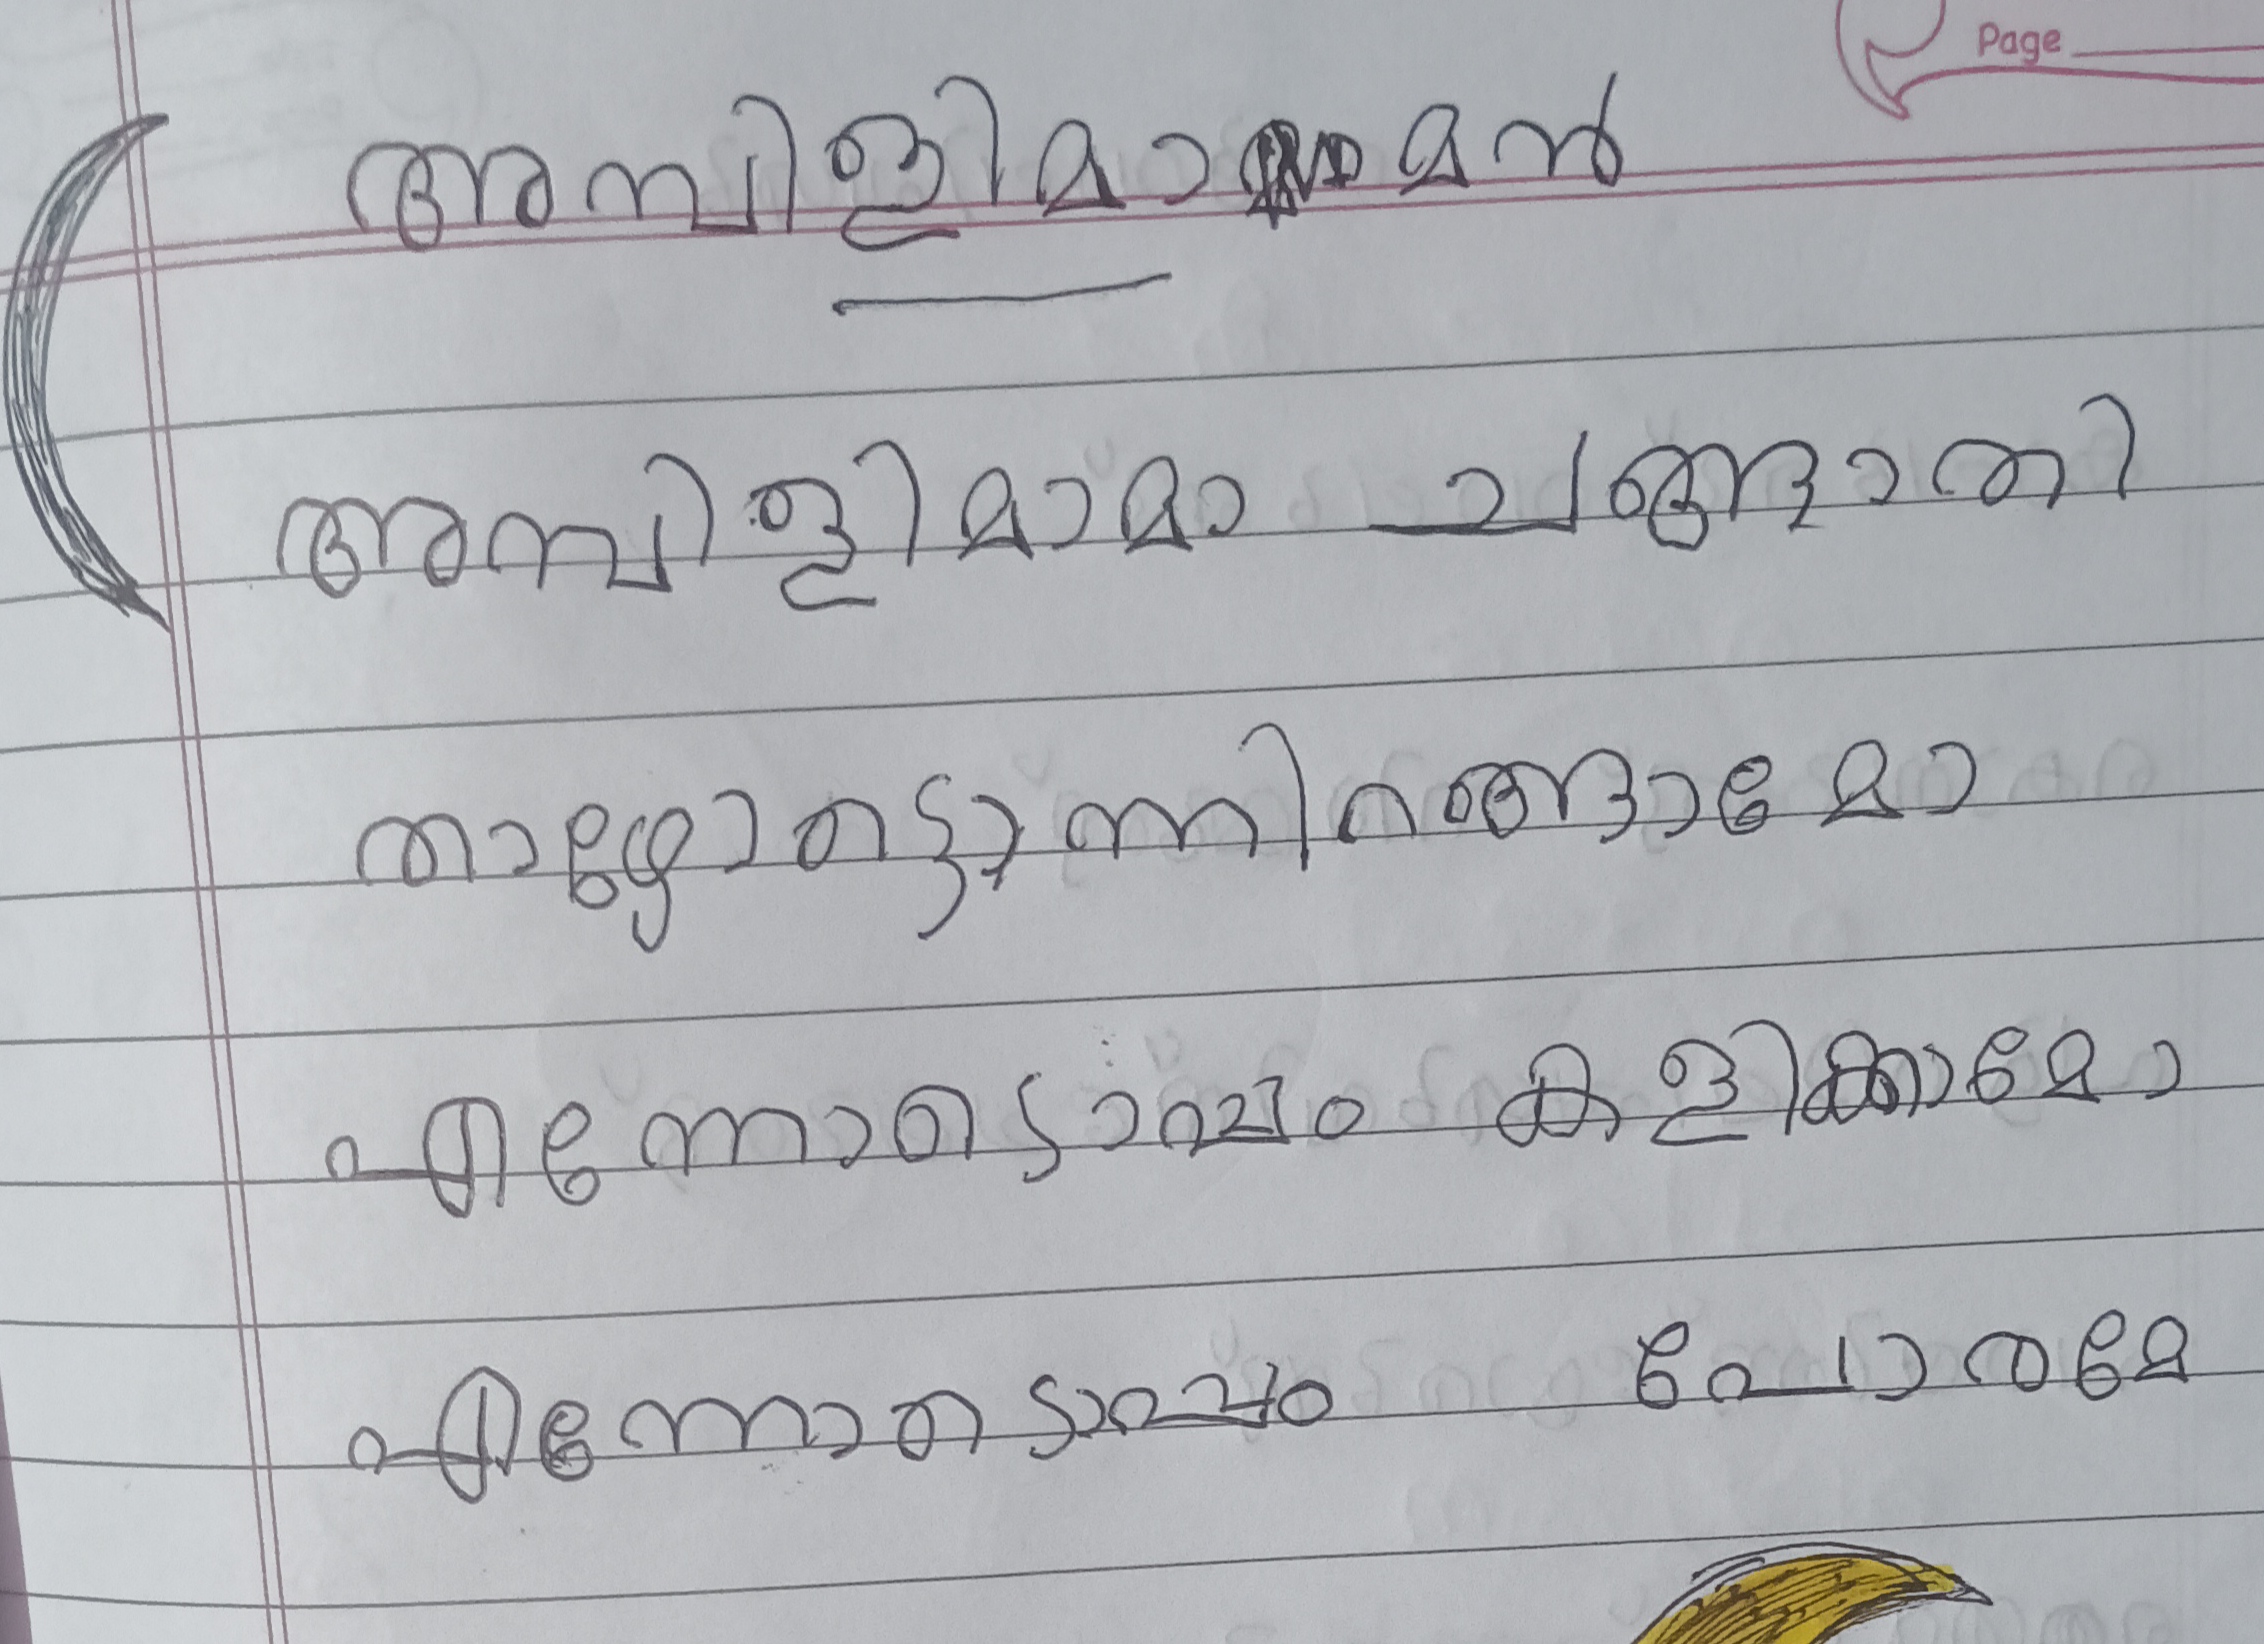 Page
അമ്പിളിമാമൻ
അമ്പിളിമാമാ ചങ്ങാതി
താഴോട്ടൊന്നിറങ്ങാമോ
എന്നോടൊപ്പം കളിക്കാമോ
എന്നോടൊപ്പം പോരമേ